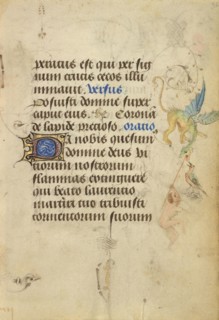 peratus est qui per sig
num crucis cecos illu
minauit. versus
Posuisti domine super
caput eius. Corona
de lapide precioso. oratio
Da nobis quesum
domine deus vi
tiorum nostrorum
flammas extinguere
qui beato laurentio
martiri tuo tribuisti
tormentorum suorum